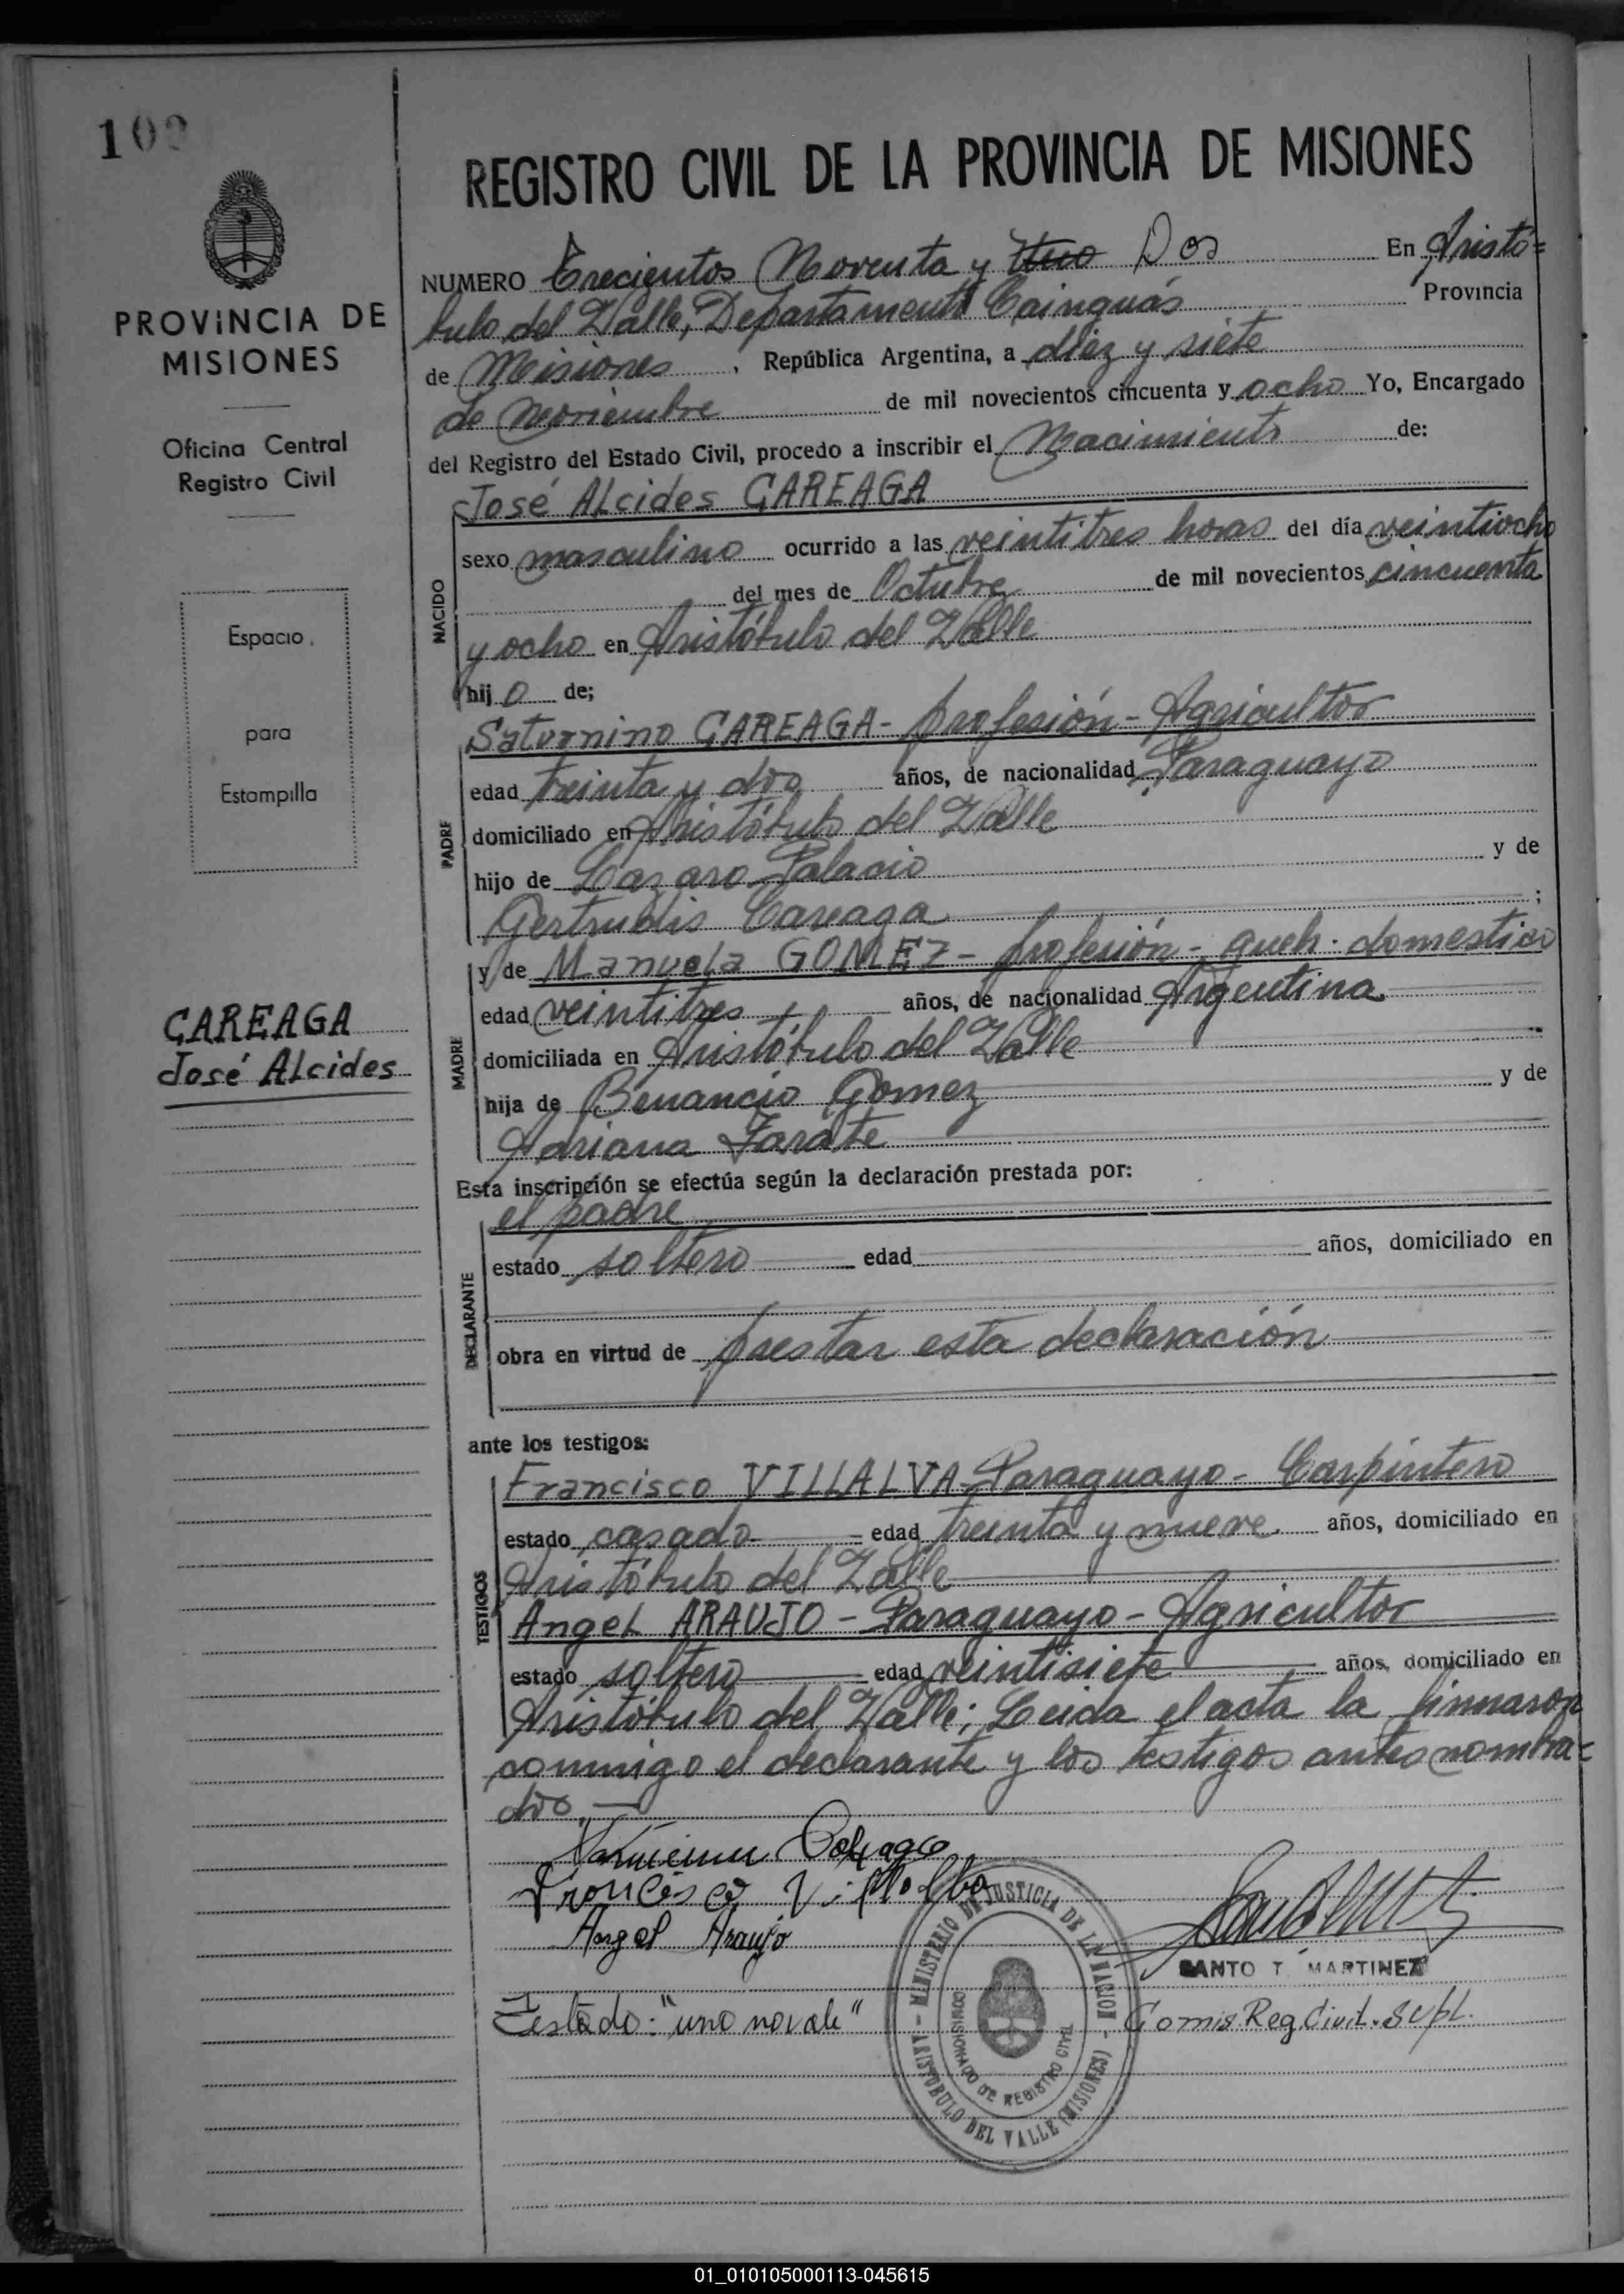 REGISTRO CIVIL DE LA PROVINCIA DE MISIONES
PROVINCIA DE
MISIONES
Oficina Central
Registro Civil
Espacio
para
Estampilla
CAREAGA
José ALcides
NUMERO Trecientos Noventa y Uno Dos En Aristó=
bulo del Valle, Departamento Cainguás Provincia
de Misiones, República Argentina, a diez y siete
de Noviembre de mil novecientos cincuenta y ocho Yo, Encargado
del Registro del Estado Civil, procedo a inscribir el Nacimiento de:
José ALcides CAREAGA
NACIDO
sexo masculino ocurrido a las veintitres horas del día veintiocho
del mes de Octubre de mil novecientos cincuenta
y ocho en Aristóbulo del Valle
hijo de;
Saturnino CAREAGA - profesión - Agricultor
PADRE
edad treinta y dos años, de nacionalidad Paraguayo
domiciliado en Aristóbulo del Valle
hijo de Lazaro Palacio y de
Gertrudis Careaga ;
y de Manuela GOMEZ - profesión - queh. domestico
MADRE
edad veintitres años, de nacionalidad Argentina
domiciliada en Aristóbulo del Valle
hija de Benancio Gomez y de
Adriana Zarate
Esta inscripción se efectúa según la declaración prestada por:
el padre
DECLARANTE
estado soltero edad años, domiciliado en
obra en virtud de prestar esta declaración
ante los testigos:
Francisco VILLALVA - Paraguayo - Carpintero
TESTIGOS
estado casado edad treinta y nueve años, domiciliado en
Aristóbulo del Valle
Angel ARAUJO - Paraguayo - Agricultor
estado soltero edad veintisiete años, domiciliado en
Aristóbulo del Valle; Leida el acta la firmaron
conmigo el declarante y los testigos antes nombra=
dos.—
Francisco Villalba
Angel Araujo
SANTO T. MARTINEZ
Testado: "uno no vale"
Comis Reg. Civil. Supl.
MINISTERIO DE JUSTICIA DE LA NACION - ARISTOBULO DEL VALLE (MISIONES)
COMISIONADO DE REGISTRO CIVIL
01_010105000113-045615